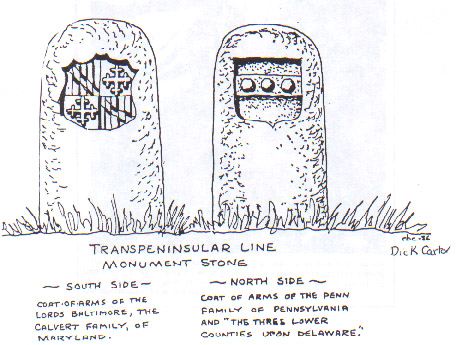 rhc-86
Dick Carter
TRANSPENINSULAR LINE
MONUMENT STONE
~ SOUTH SIDE ~
COAT-OF-ARMS OF THE
LORDS BALTIMORE, THE
CALVERT FAMILY, OF
MARYLAND.
~ NORTH SIDE ~
COAT OF ARMS OF THE PENN
FAMILY OF PENNSYLVANIA
AND "THE THREE LOWER
COUNTIES UPON DELAWARE."